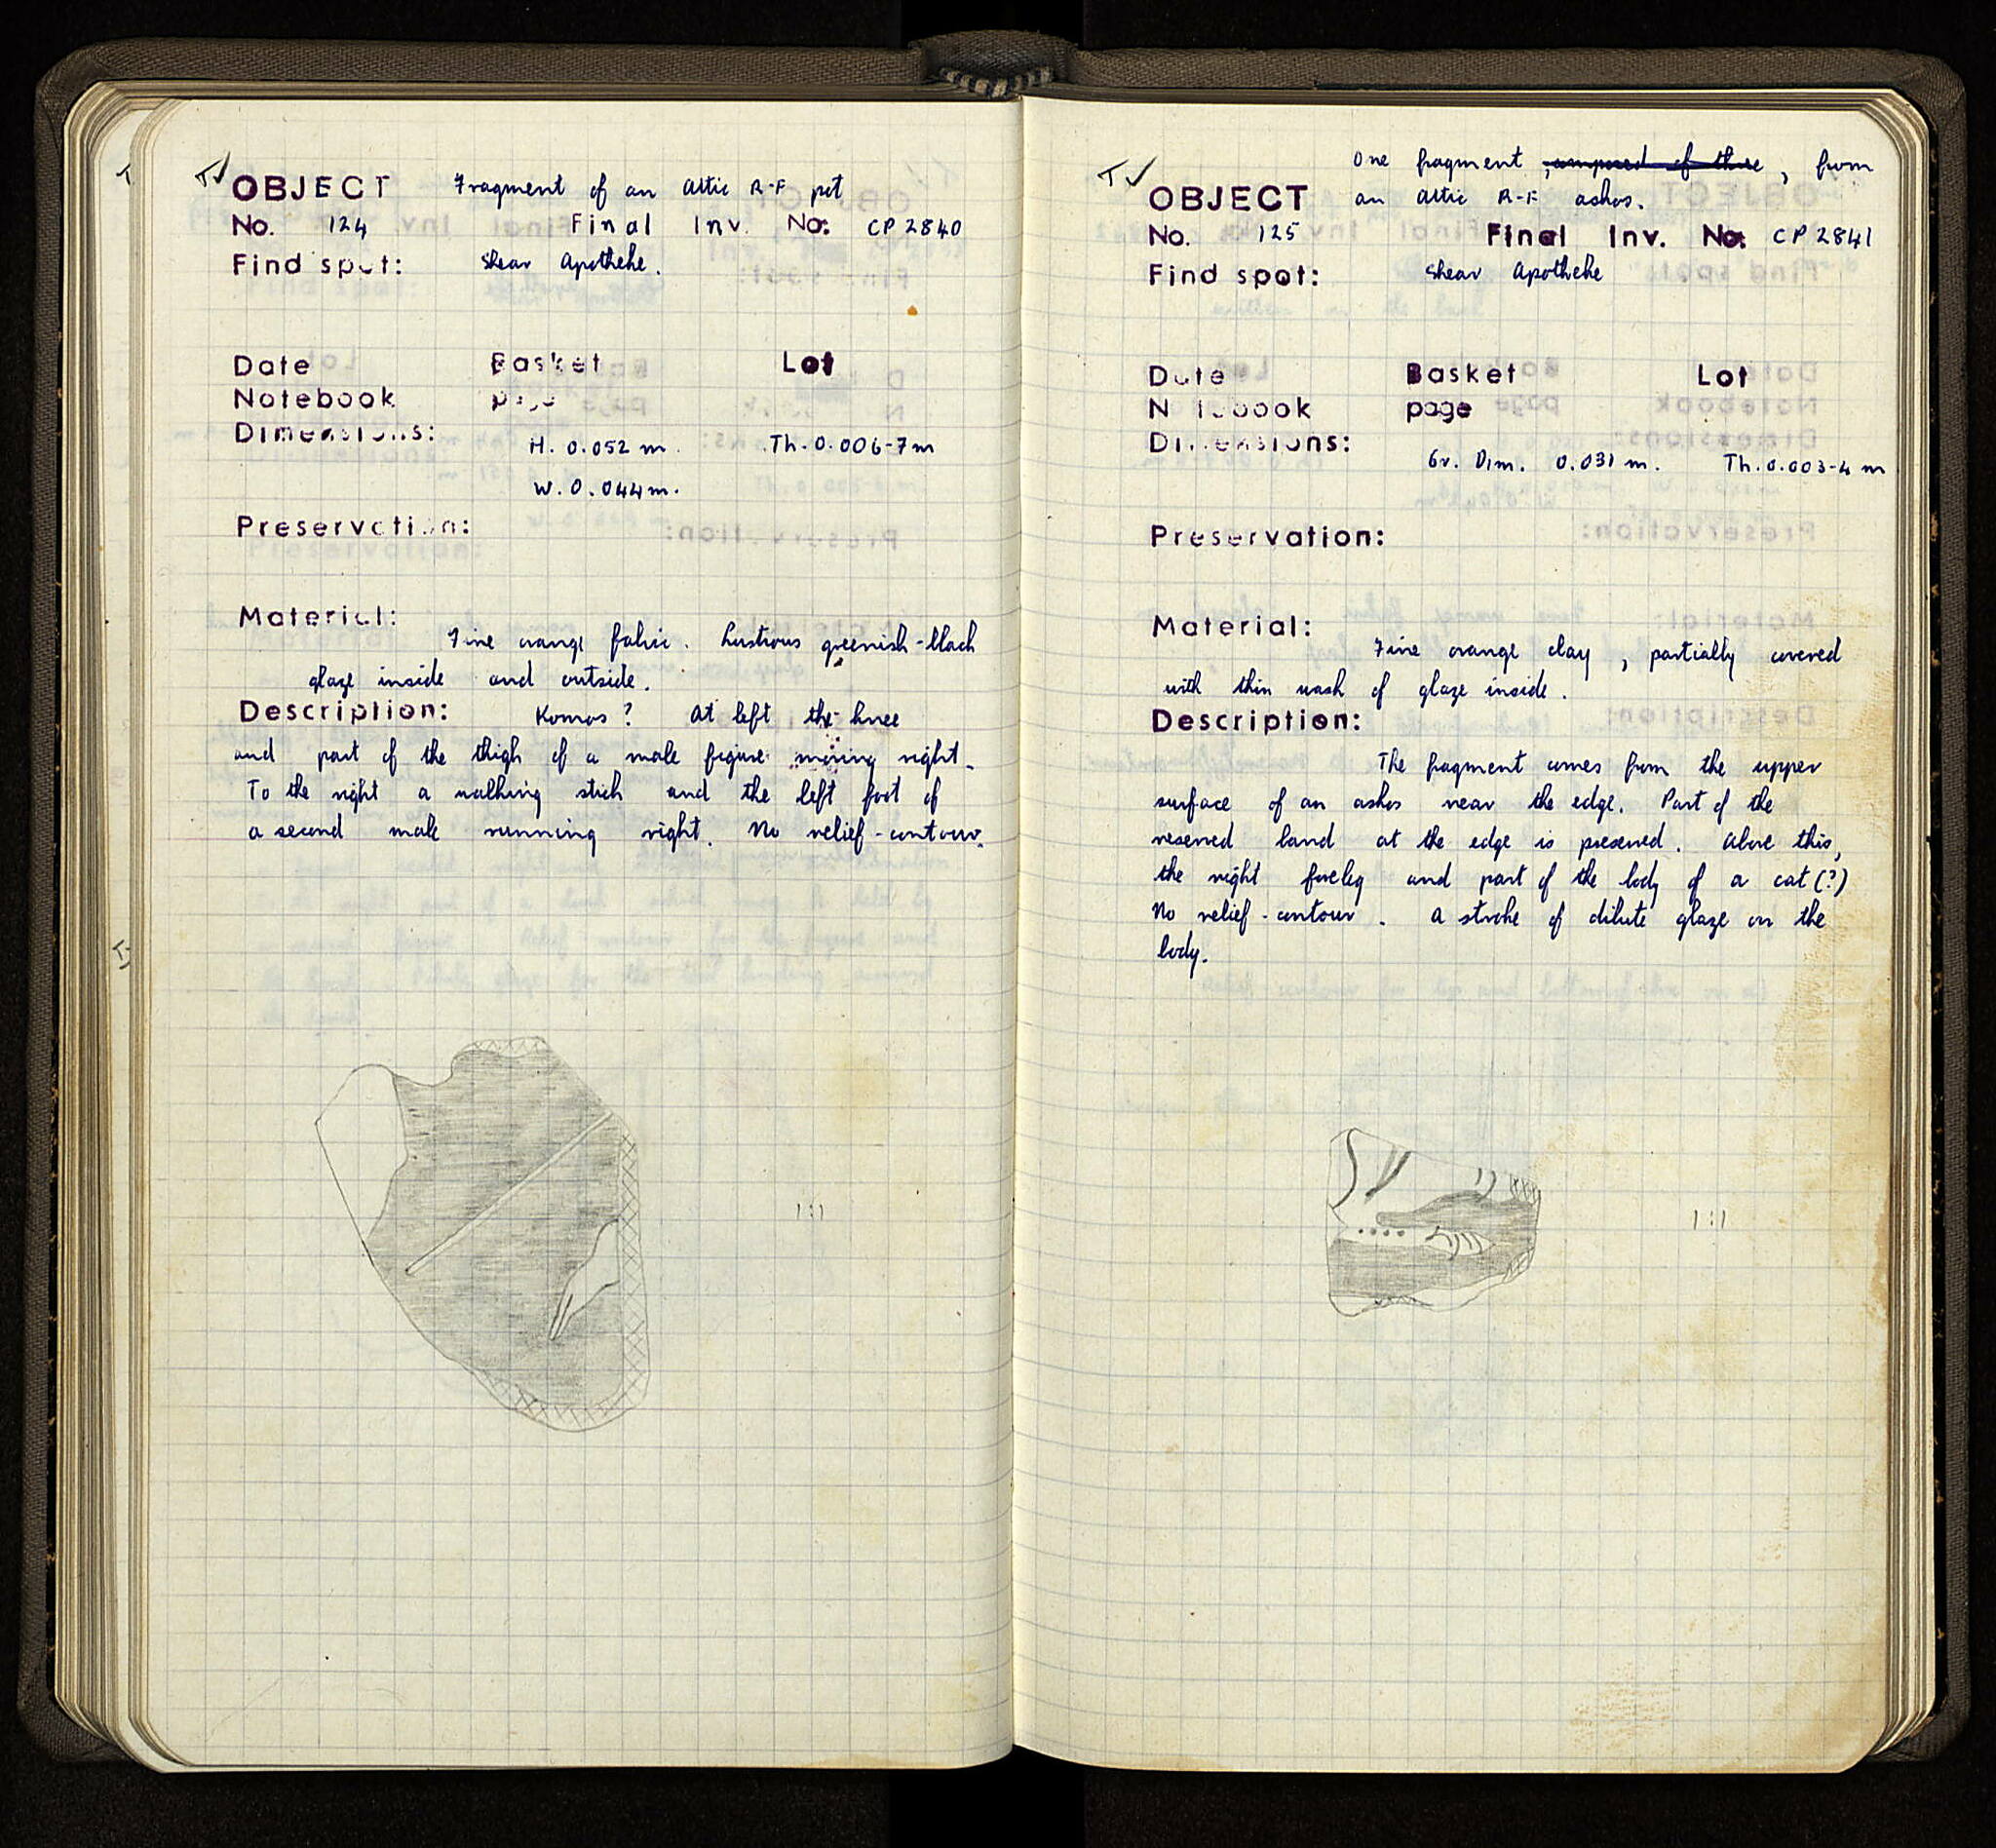 T✓
OBJECT Fragment of an Attic R-F pot
No. 124 Final Inv. No: CP 2840
Find spot: Shear Apotheke.
Date Basket Lot
Notebook page
Dimensions: H. 0.052 m. Th. 0.006-7 m
W. 0.044 m.
Preservation:
Material:
Fine orange fabric. Lustrous greenish-black
glaze inside and outside.
Description: Komos? At left the knee
and part of the thigh of a male figure moving right.
To the right a walking stick and the left foot of
a second male running right. No relief-contour.
1:1
One fragment composed of three, from
T✓
OBJECT an Attic R-F askos.
No. 125 Final Inv. No: CP 2841
Find spot: Shear Apotheke
Date Basket Lot
Notebook page
Dimensions:
Gr. Dim. 0.031 m. Th. 0.003-4 m
Preservation:
Material:
Fine orange clay, partially covered
with thin wash of glaze inside.
Description:
The fragment comes from the upper
surface of an askos near the edge. Part of the
reserved band at the edge is preserved. Above this,
the right foreleg and part of the body of a cat (?)
No relief-contour. A stroke of dilute glaze on the
body.
1:1